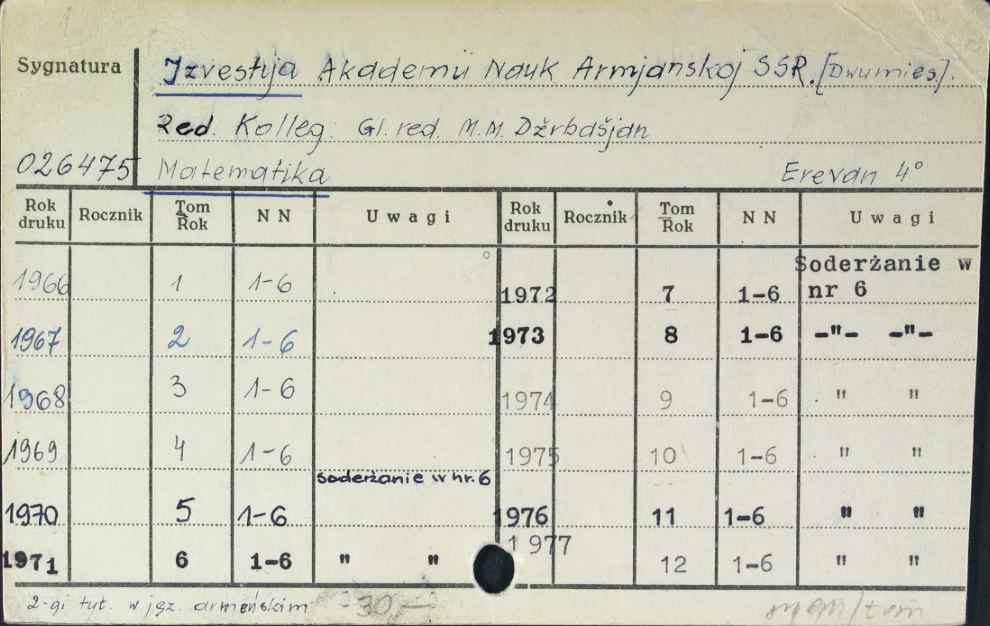 Sygnatura Izvestija Akademii Nauk Armjanskoj SSR. [Dwumies.].
Red. Kolleg. Gl. red. M.M. Džrbašjan
026475 Matematika Erevan 4°
Rok druku Rocznik Tom Rok N N Uwagi Rok druku Rocznik Tom Rok N N Uwagi
1966 1 1-6 1972 7 1-6 Soderżanie w nr 6
1967 2 1-6 1973 8 1-6 -"- -"-
1968 3 1-6 1974 9 1-6 " "
1969 4 1-6 1975 10 1-6 " "
1970 5 1-6 soderżanie w nr. 6 1976 11 1-6 " "
1971 6 1-6 " " 1977 12 1-6 " "
2-gi tyt. w jęz. armeńskim -30,-